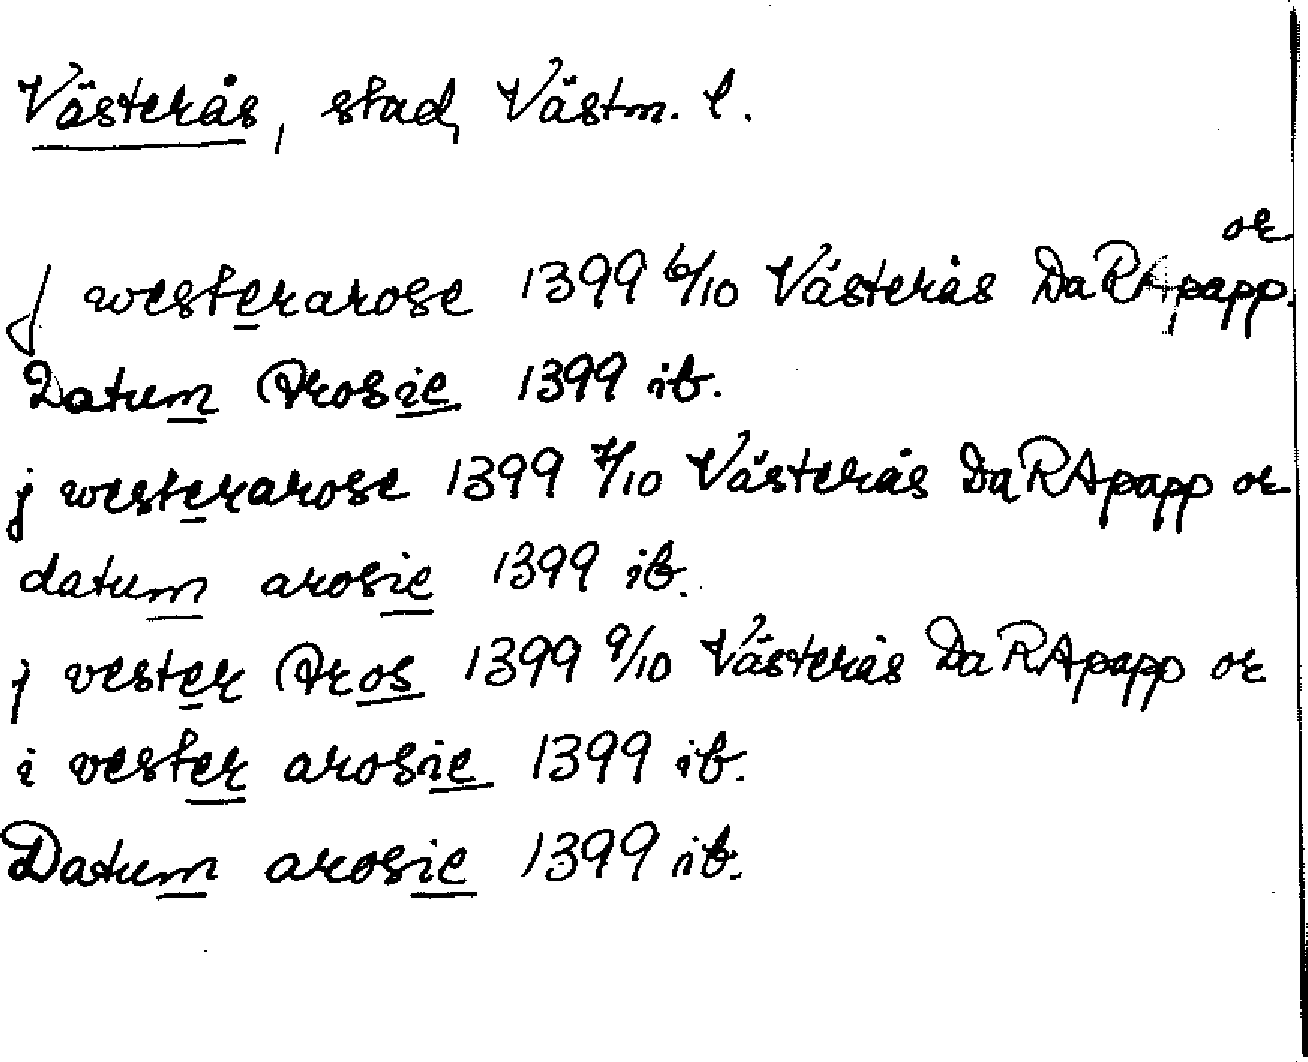 Västerås, stad, Västm. l.
J westerarose 1399 6/10 Västerås DaRApapp. or
Datum Arosie 1399 ib.
j westerarose 1399 7/10 Västerås DaRApapp or
datum arosie 1399 ib.
j vester Aros 1399 9/10 Västerås DaRApapp or
i vester arosie 1399 ib.
Datum arosie 1399 ib.